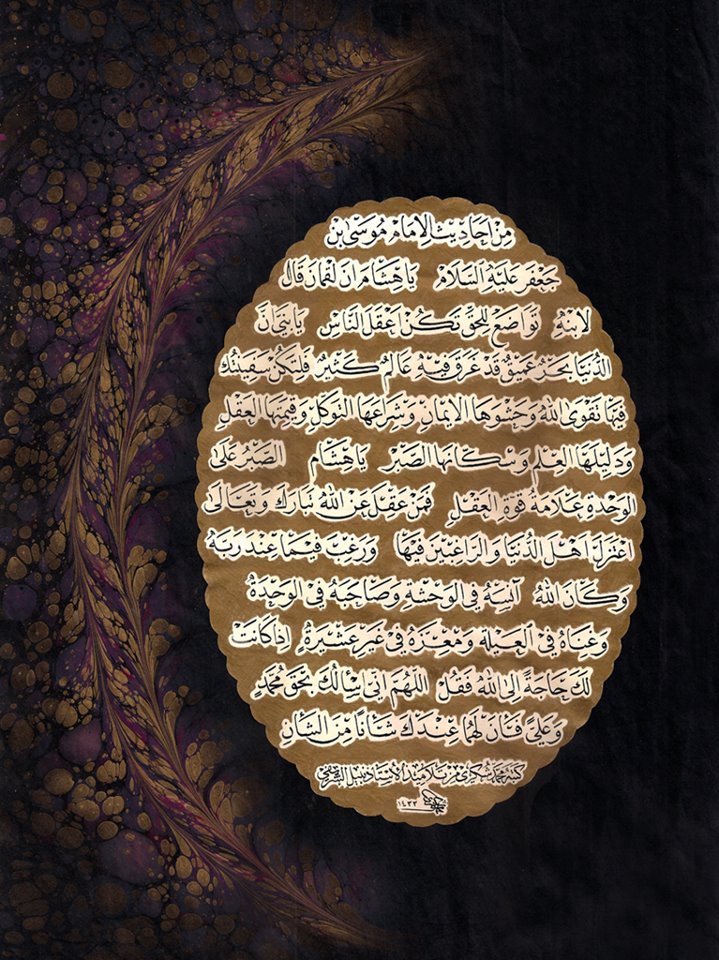 من احاديث الامام موسى بن
جعفر عليه السلام يا هشام ان لقمان قال
لابنه تواضع للحق تكن اعقل الناس يا بني ان
الدنيا بحر عميق قد غرق فيه عالم كثير فلتكن سفينتك
فيها تقوى الله وحشوها الايمان وشراعها التوكل وقيمها العقل
ودليلها العلم وسكانها الصبر يا هشام الصبر على
الوحدة علامة قوة العقل فمن عقل عن الله تبارك وتعالى
اعتزل اهل الدنيا والراغبين فيها ورغب فيما عند ربه
وكان الله آنسه في الوحشة وصاحبه في الوحدة
وغناه في العيلة ومعزه في غير عشيرة اذا كانت
لك حاجة الى الله فقل اللهم اني اسالك بحق محمد
وعلي فان لهما عندك شانا من الشان
كتبه محمد شكري من تلاميذ الاستاذ نبيل الشريفي
١٤٣٣